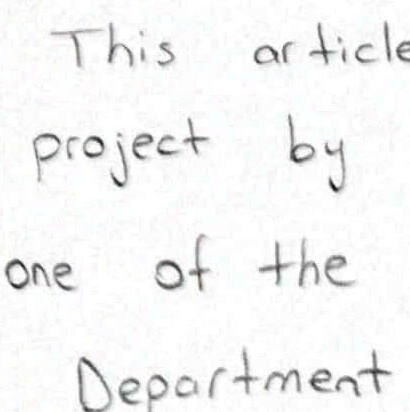 This article
project by
one of the
Department